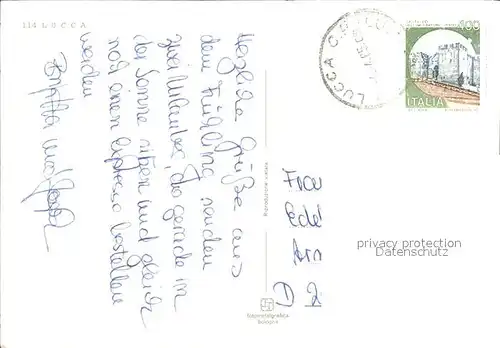 114 LUCCA
Herzliche Grüße aus
dem Frühling senden
zwei Urlauber, die gerade in
der Sonne sitzen und gleich
noch einen Espresso bestellen
werden
Riproduzione vietata
fotometalgrafica
bologna
LUCCA C.P.
400
ITALIA
Frau
Edel
Am
D 2
privacy protection
Datenschutz